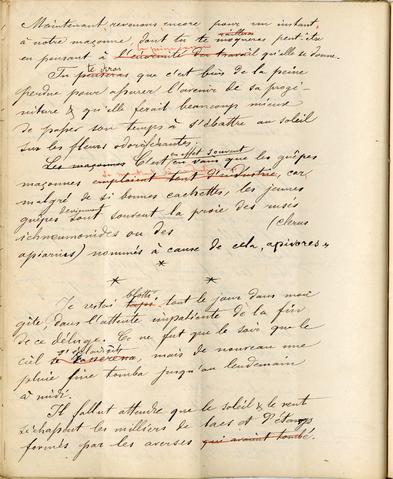 Maintenant revenons encore pour un instant,
à notre maçonne, dont tu te moqueras peut-être
en pensant à l'énormité du travail qu'elle se donne.
Tu penseras que c'est bien de la peine
perdue pour assurer l'avenir de sa progé-
niture & qu'elle ferait beaucoup mieux
de passer son temps à s'ébattre au soleil
sur les fleurs odoriférantes.
Les maçonnes C'est en effet souvent
en vain que les guêpes
maçonnes emploient tant d'industrie, car
malgré de si bonnes cachettes, les jeunes
guêpes deviennent sont souvent la proie des rusés
ichneumonides ou des (clerus
apiarius) nommés à cause de cela, apivores.
* *
*
Je restai blotti tout le jour dans mon
gîte, dans l'attente impatiente de la fin
de ce déluge. Ce ne fut que le soir que le
ciel s'éclaircit, mais de nouveau une
pluie fine tomba jusqu'au lendemain
à midi.
Il fallut attendre que le soleil & le vent
séchassent les milliers de lacs et d'étangs
formés par les averses qui avaient tombé.